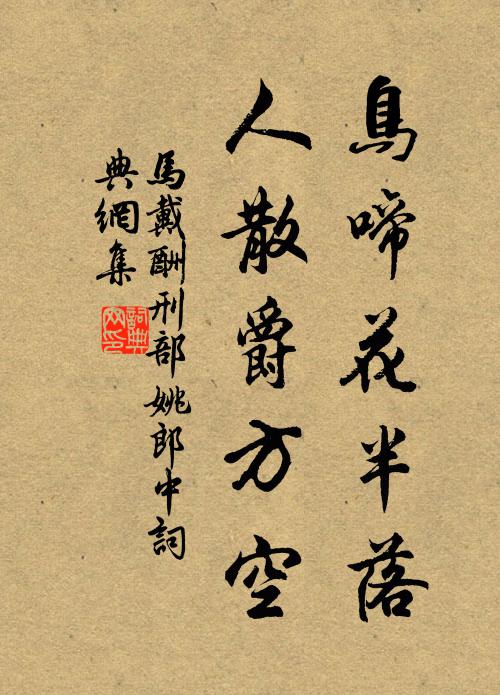 鳥啼花半落
人散爵方空
馬戴酬刑部姚郎中詞
典網集
詞典网印